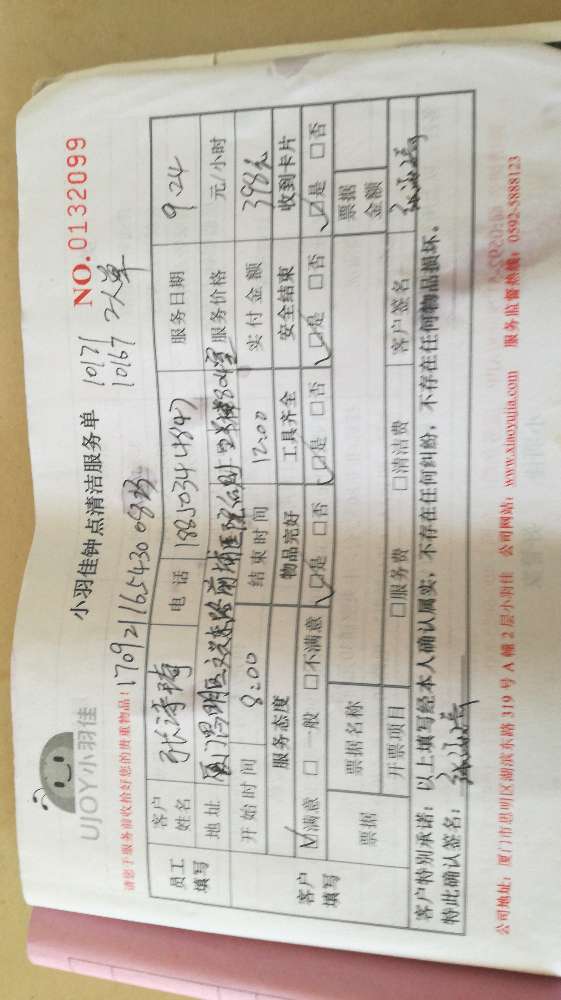 UJOY小羽佳
小羽佳钟点清洁服务单
NO.0132099
10171
10167 2人单
请您于服务前收拾好您的贵重物品!
员工填写 客户姓名 电话 18850344847 服务日期 9.24
地址 服务价格 元/小时
开始时间 8:00 结束时间 12:00 实付金额 398元
客户填写 服务态度 物品完好 工具齐全 安全结束 收到卡片
☑满意 □一般 □不满意 ☑是 □否 ☑是 □否 ☑是 □否 ☑是 □否
票据 票据名称 票据金额
开票项目 □服务费 □清洁费 客户签名
客户特别承诺：以上填写经本人确认属实，不存在任何纠纷，不存在任何物品损坏。
特此确认签名：
公司地址：厦门市思明区湖滨东路 319 号 A 幢 2 层小羽佳 公司网站：www.xiaoyujia.com 服务监督热线：0592-5888123